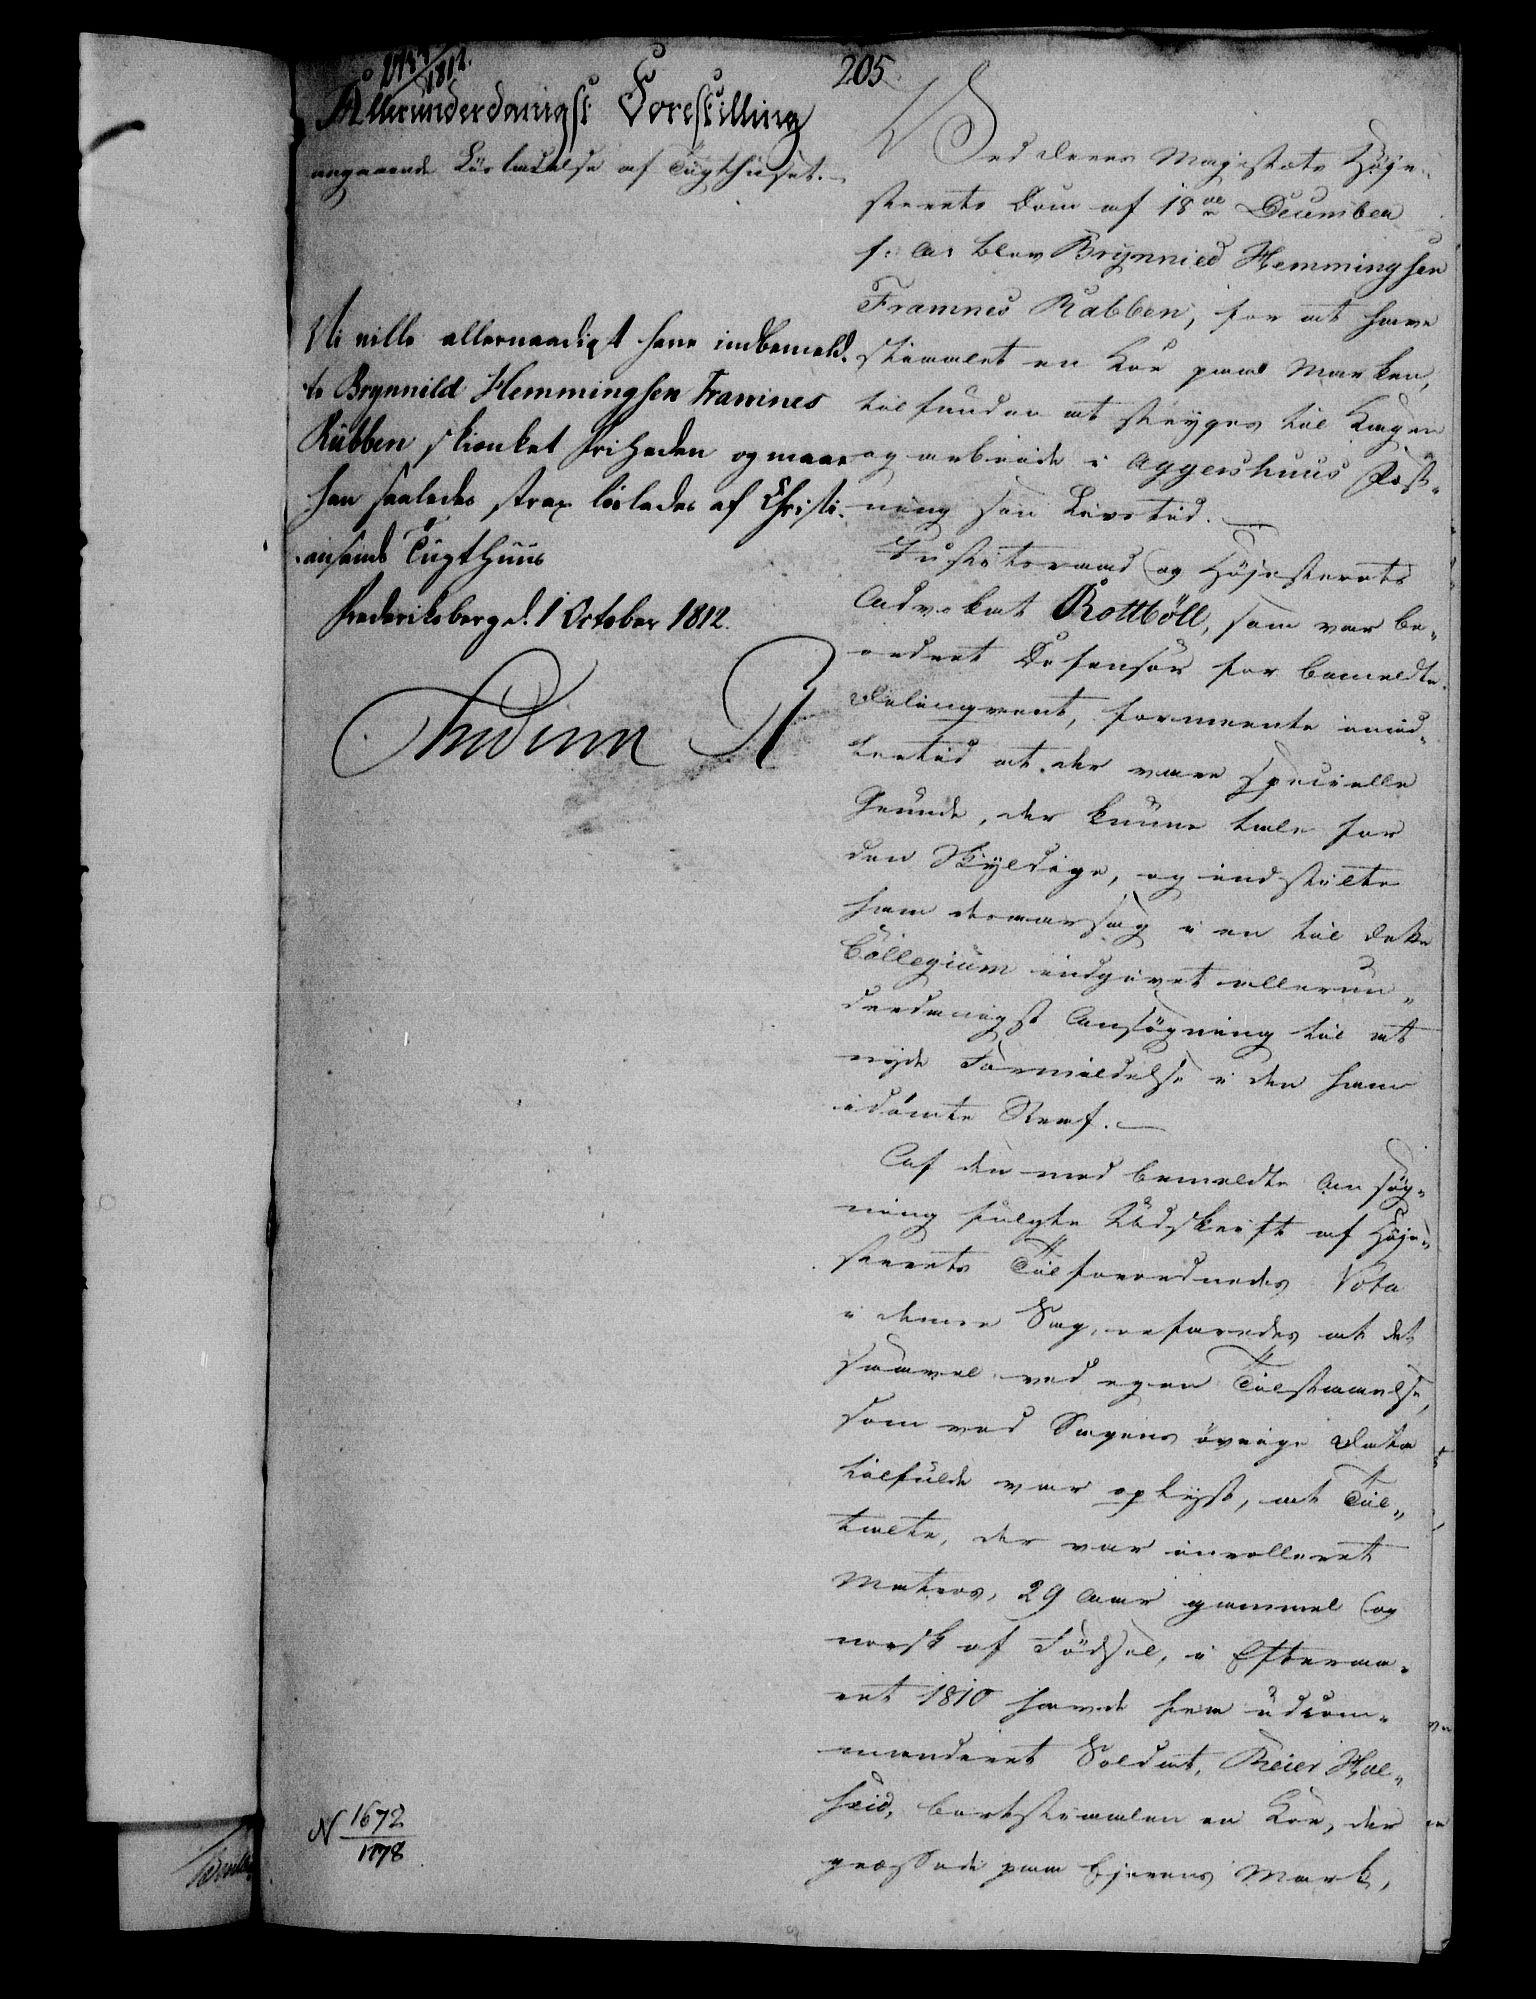 205.
1812.
Allerunderdanigst Forestilling
angaaende Löslatelse af Tugthuset.
Vi ville allernaadigst have indbemeld-
te Brynnild Hemmingsen Framnes
Rabben skienket Friheden og maae
han saaledes strax löslades af Christi-
ansands Tugthuus
Frederiksberg d. 1 October 1812.
Frederik R
N 1672/1178
Ved Deres Majestæts Höje-
sterets Dom af 18de December
f: A: blev Brynnild Hemmingsen
Framnes Rabben, for at have
stiaalet en Koe paa Marken,
tilfunden at stryges til Kagen
og arbeide i Aggershuus Fæst-
ning sin Livstid.
Justitsraad og Höjesterets
Advokat Rottböll, som var be-
ordret Defensor for bemeldte
Delinqvent, formeente imid-
lertid at der vare specielle
Grunde, der kunne tale for
den Skyldige, og indstilte
ham desaarsag i en til dette
Collegium indgivet allerun-
derdanigst Ansögning til at
nyde Formildelse i den ham
idömte Straf.
Af den med bemeldte Ansög-
ning fulgte Udskrift af Höje-
sterets Tilforordnedes Vota
i denne Sag, erfaredes at det
saavel ved egen Tilstaaelse,
som ved Sagens övrige Data
tilfulde var oplyst, at Til-
talte, der var inrolleret
Matros, 29 Aar gammel og
norsk af Födsel, i Efteraa-
ret 1810 havde fra udcom-
manderet Soldat, Reier Hol-
seid, bortstiaalen en Koe, der
græssede paa Ejerens Mark,